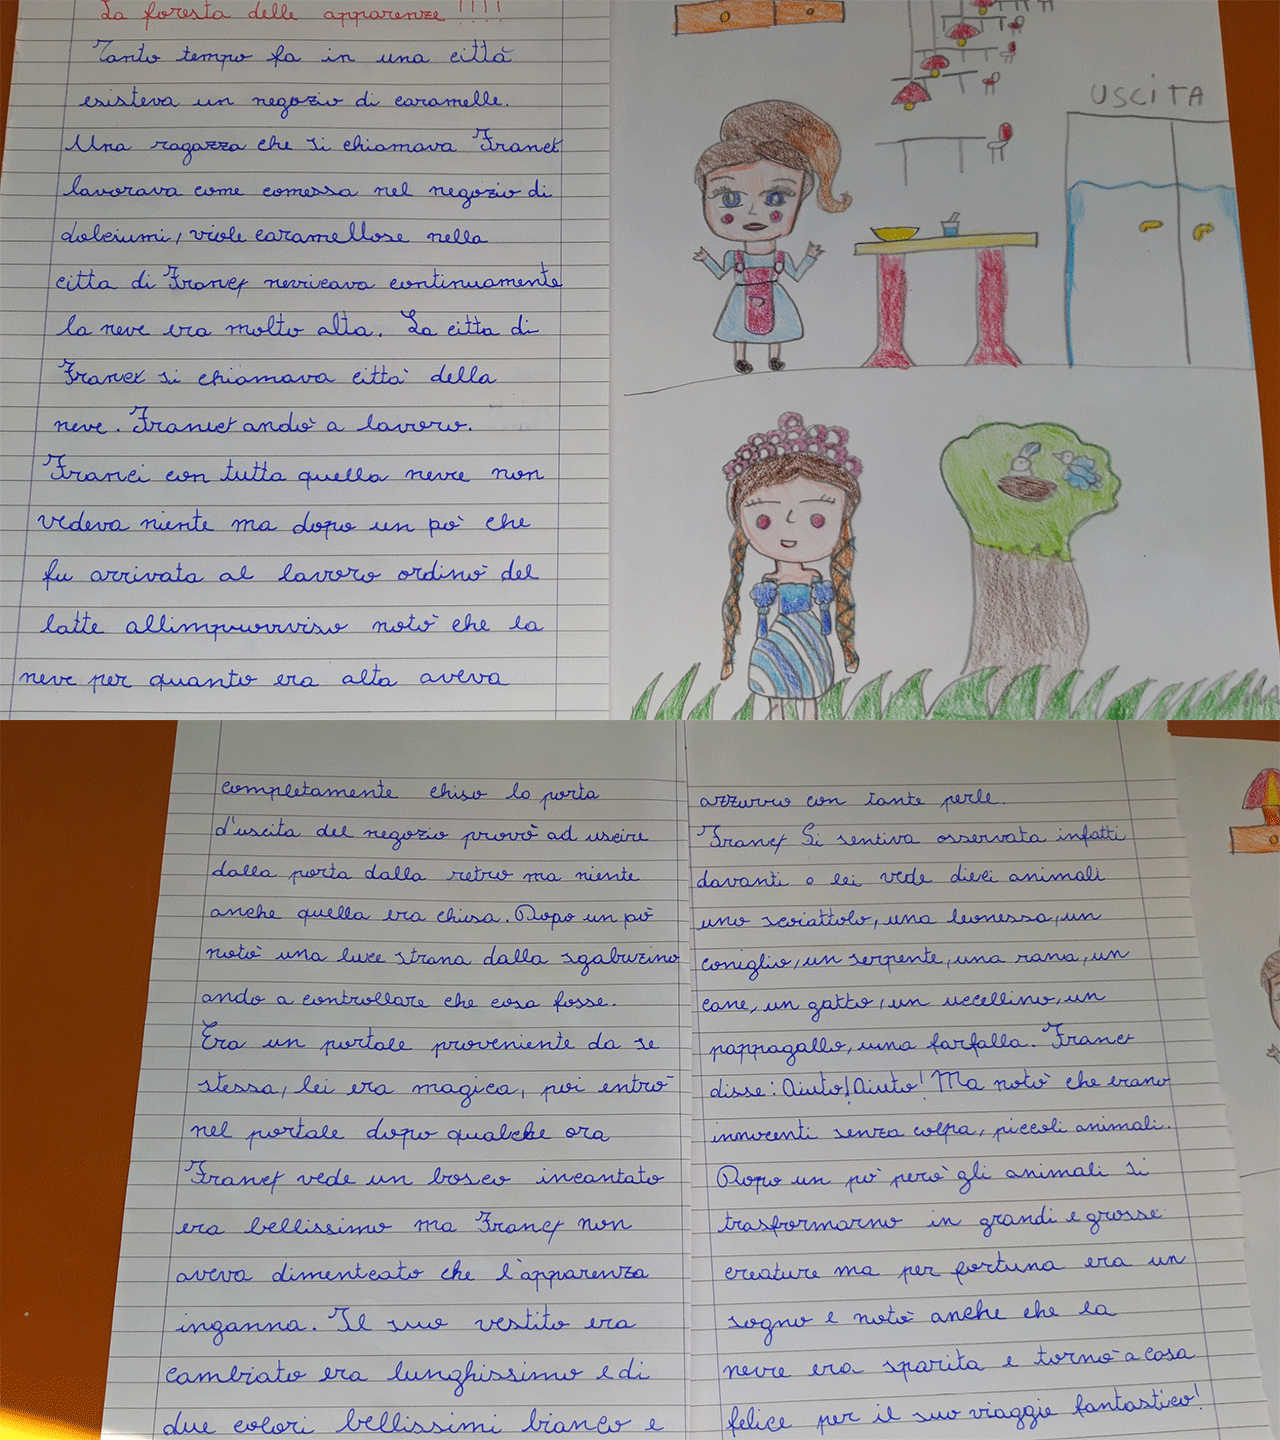 La foresta delle apparenze!!!!
Tanto tempo fa in una città
esisteva un negozio di caramelle.
Una ragazza che si chiamava Francy
lavorava come comessa nel negozio di
dolciumi, viole caramellose nella
citta di Francy nevricava continuamente
la neve era molto alta. La citta di
Francy si chiamava città della
neve. Francy andò a lavoro.
Franci con tutta quella nevre non
vedeva niente ma dopo un pò che
fu arrivata al lavoro ordinò del
latte allimprovviso notò che la
neve per quanto era alta aveva
USCITA
completamente chiso la porta
d'uscita del negozio provò ad uscire
dalla porta dalla retro ma niente
anche quella era chiusa. Dopo un pò
notò una luce strana dalla sgabuzino
ando a controllare che cosa fosse.
Era un portale proveniente da se
stessa, lei era magica, poi entrò
nel portale dopo qualche ora
Francy vede un bosco incantato
era bellissimo ma Francy non
aveva dimenticato che l'apparenza
inganna. Il suo vestito era
cambiato era lunghissimo e di
due colori bellissimi bianco e
azzurro con tante perle.
Francy Si sentiva osservata infatti
davanti a lei vede dieci animali
uno scoiattolo, una leonessa, un
coniglio, un serpente, una rana, un
cane, un gatto, un uccellino, un
pappagallo, una farfalla. Francy
disse: Aiuto! Aiuto! Ma notò che erano
innocenti senza colpa, piccoli animali.
Dopo un pò però gli animali si
trasformarno in grandi e grosse
creature ma per fortuna era un
sogno e notò anche che la
nevre era sparita e tornò a casa
felice per il suo viaggie fantastico!